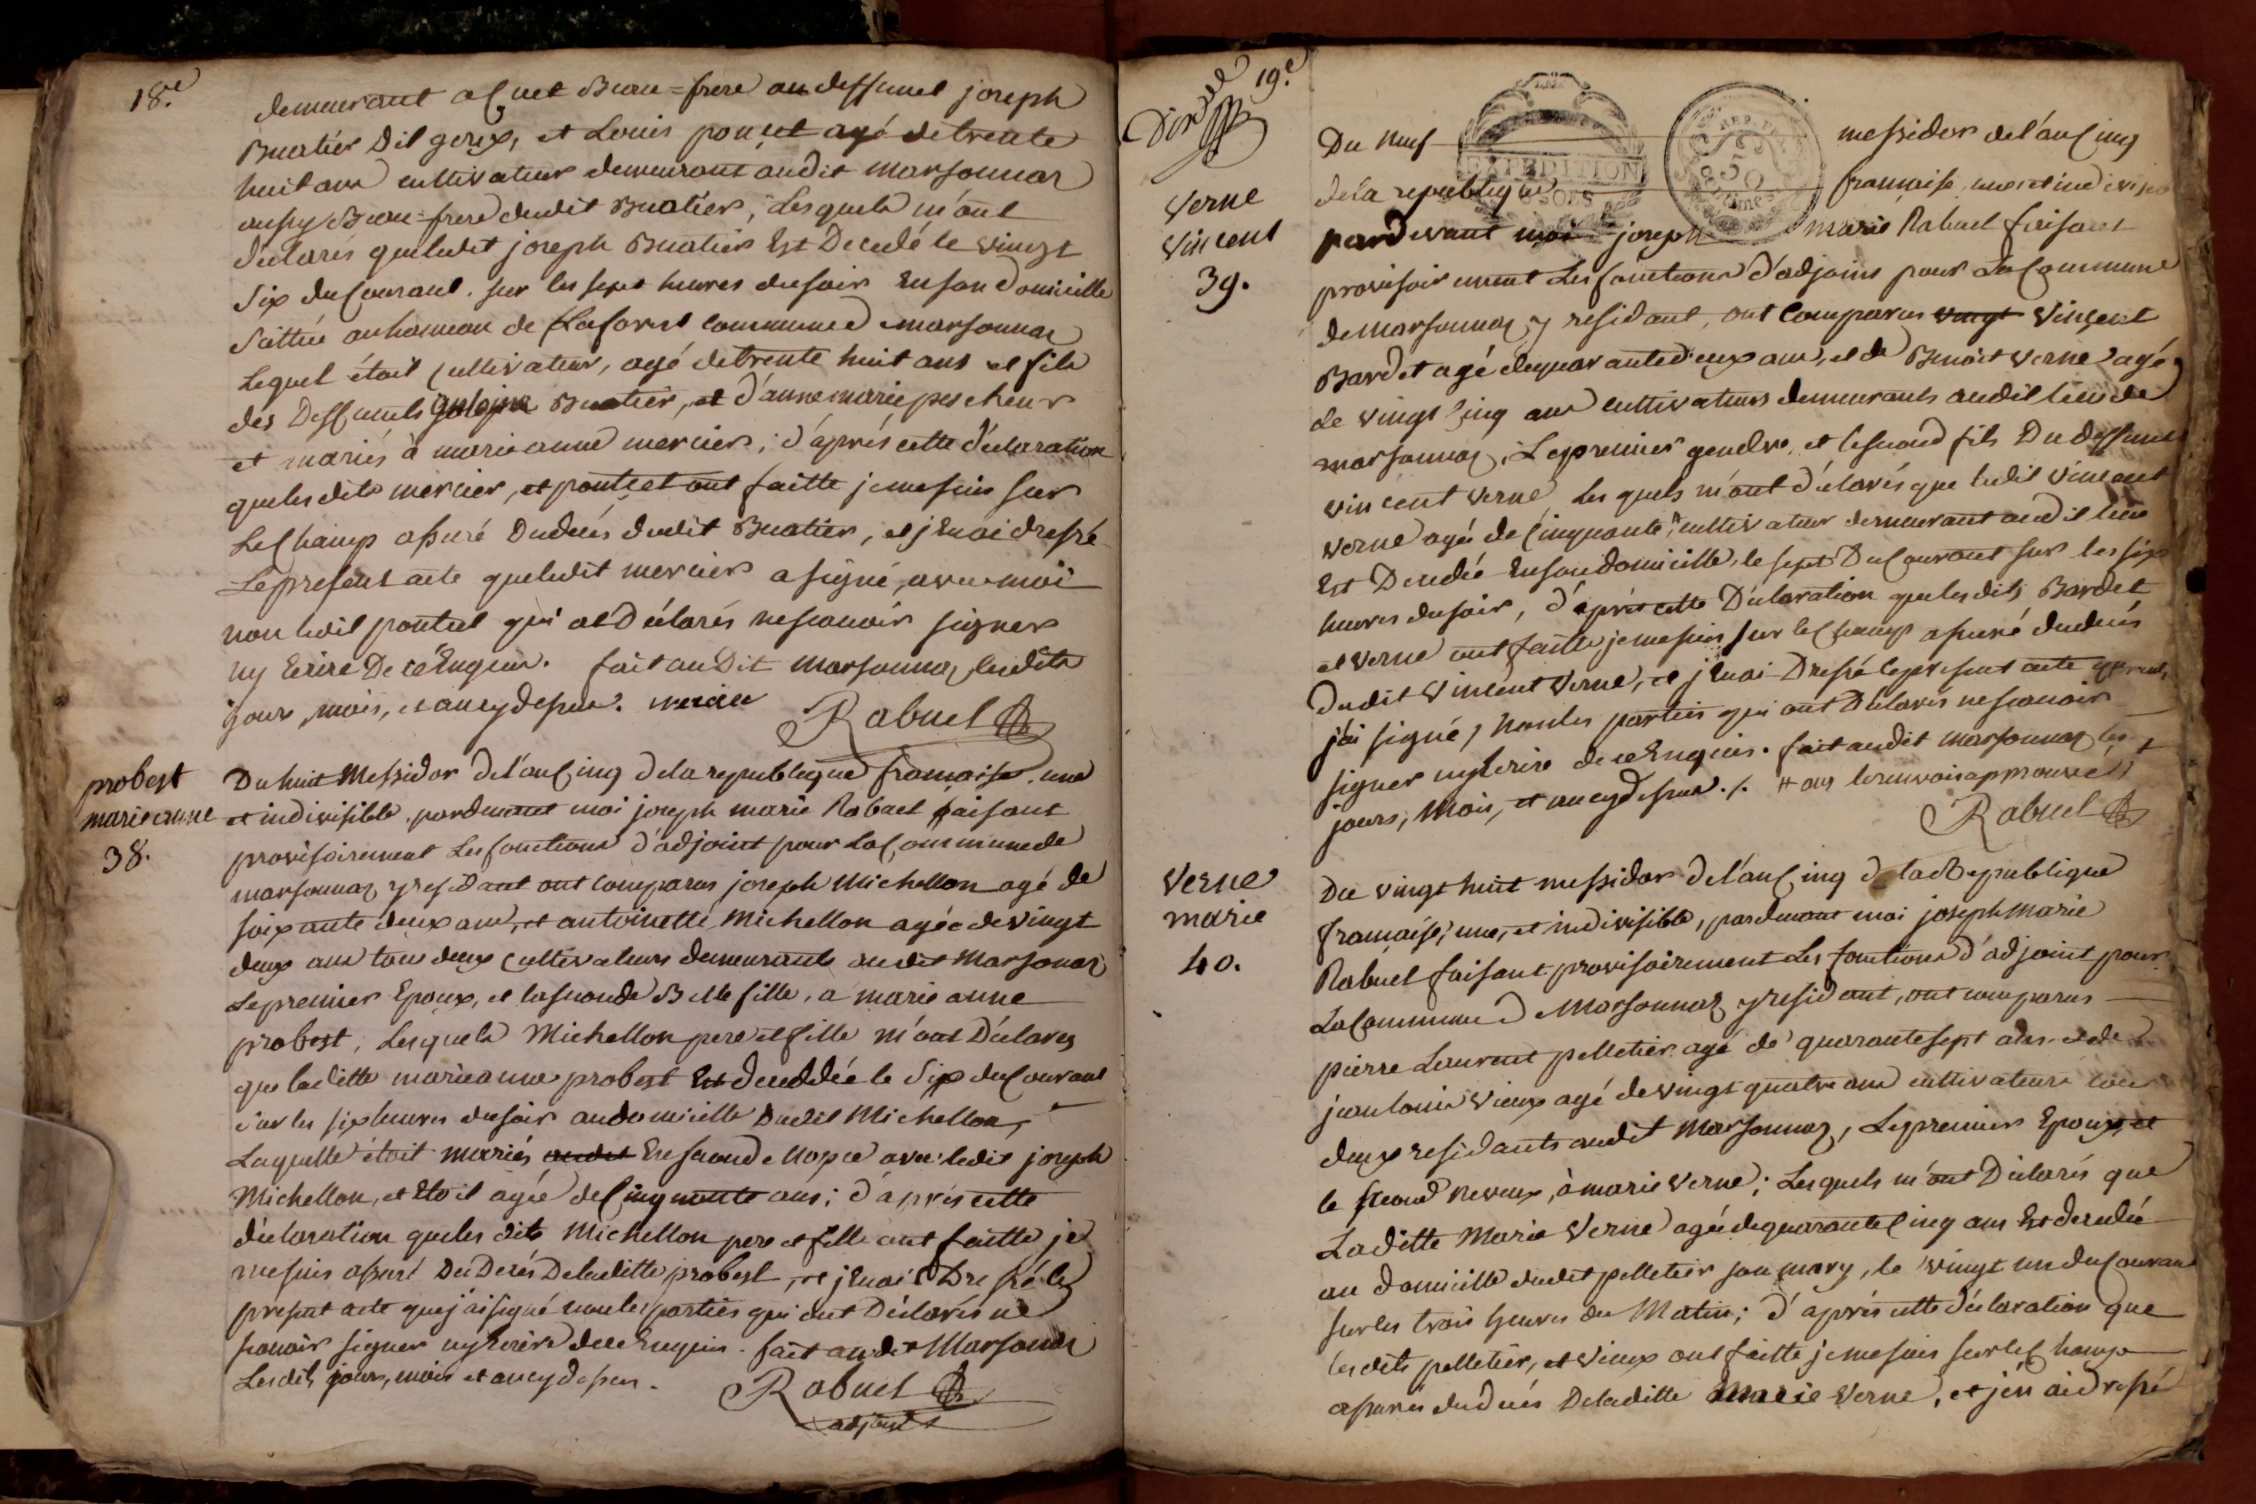 18.e
demeurant a Cuet Beau=frere au deffunt joseph
Buatier dit goux, et Louis ponçet agé de trente
huit ans cultivateur demeurant audit marsonnaz
aussy Beau=frere dudit Buatier, Lesquels m'ont
déclarés queledit joseph Buatier Est Decedé le vingt
Six du Courant. sur les sept heures du soir En son domicille
Sittué au hameau de Laforest commune de marsonnaz
Lequel étoit Cultivateur, agé de trente huit ans et fils
des Deffunts Buatier, et d'anne marie pescheur
et mariés à marie anne mercier; d'après cette déclaration
que lesdits mercier, et pontçet ont faitte je me suis sur
Le Champ assuré Du decés dudit Buatier, et j'En ai dressé
Le present acte queledit mercier a signé avec moi
non ledit pontcet qui a Déclarés ne scavoir signer
ny Ecrire De ce Enquis. fait au Dit marsonnaz lesdits
jour, mois, et an cy dessus. mercier
Rabuel
probest
marie anne
38.
Du huit Messidor de l'an Cinq de la republique françaises. une
et indivisible. pardevant moi joseph marie Rabuel faisant
provisoirement Les fonctions d'adjoint pour La Commune de
marsonnaz y residant ont comparus joseph Michellon agé de
soixante deux ans, et antoinette Michellon agée de vingt
deux ans tous deux Cultivateurs demeurants audit Marsonnaz
Le premier Epoux, et la seconde Belle fille, a marie anne
probest, Lesquels Michellon pere et fille m'ont Déclarés
que laditte marie anne probest Est deceddée le Six du Courant
sur les six heures du soir au domicille Dudit Michellon,
Laquelle étoit mariés En seconde Nopce avec ledit joseph
Michellon, et Etoit agée de Cinquante ans; d'après cette
déclaration que lesdits Michellon pere et fille ont faitte je
me suis assuré Du Decés De laditte probest, et j'En ai Dressé le
présent acte que j'ai signé non les parties qui ont Déclarés ne
scavoir signer ny Ecrire de ce Enquis. fait audit Marsonnaz
Lesdits jours, mois et an cy dessus.
Rabuel
adjoint
19.e
EXPEDITION
REP. FRA
50
centimes
Verne
Vincent
39.
Du neuf messidor de l'an Cinq
de la republique française, une et indivisible
pardevant moi joseph marie Rabuel faisant
provisoirement Les fonctions d'adjoint pour La Commune
de marsonnaz y residant, ont Comparus vingt Vincent
Bardet agé de quarante deux ans, et de Benoit Verne agé
de vingt Cinq ans cultivateurs demeurants audit lieu de
marsonnaz, Le premier gendre, et le second fils Du deffunt
vincent verne Lesquels m'ont déclarés que ledit Vincent
verne agé de Cinquante # cultivateur demeurant audit lieu
Est Decedée En son domicille, le sept Du Courant sur les six
heures du soir, d'après cette Déclaration que lesdits Bardet
et verne ont faitte je me suis sur le Champ assuré du decés
dudit Vincent Verne, et j'En ai Dressé le present acte que
j'ai signé, non les parties qui ont Déclarés ne scavoir
signer ny Ecrire de ce Enquis. fait audit marsonnaz les
jours, mois, et an cy dessus. /. # ans le renvois approuvé
Rabuel
Verne
marie
40.
Du vingt huit messidor de l'an Cinq de la Republique
françaíse, une, et indivisible, pardevant moi joseph Marie
Rabuel faisant provisoirement Les fonctions d'adjoint pour
La Commune de Marsonnaz y residant, ont comparus
pierre Laurent pelletier agé de quarante sept ans et de
jean louis Vieux agé de vingt quatre ans cultivateurs tous
deux residants audit Marsonnaz, Le premier Epoux, et
le second neveux, à marie Verne; Lesquels m'ont Déclarés que
Laditte Marie Verne agée de quarante Cinq ans Est decedée
au domicille dudit pelletier son mary, le vingt un du Courant
sur les trois heures du Matin; d'après cette déclaration que
lesdits pelletier, et Vieux ont faitte je me suis sur le Champ
assurés du decés De laditte Marie Verne, et j'en ai dressé